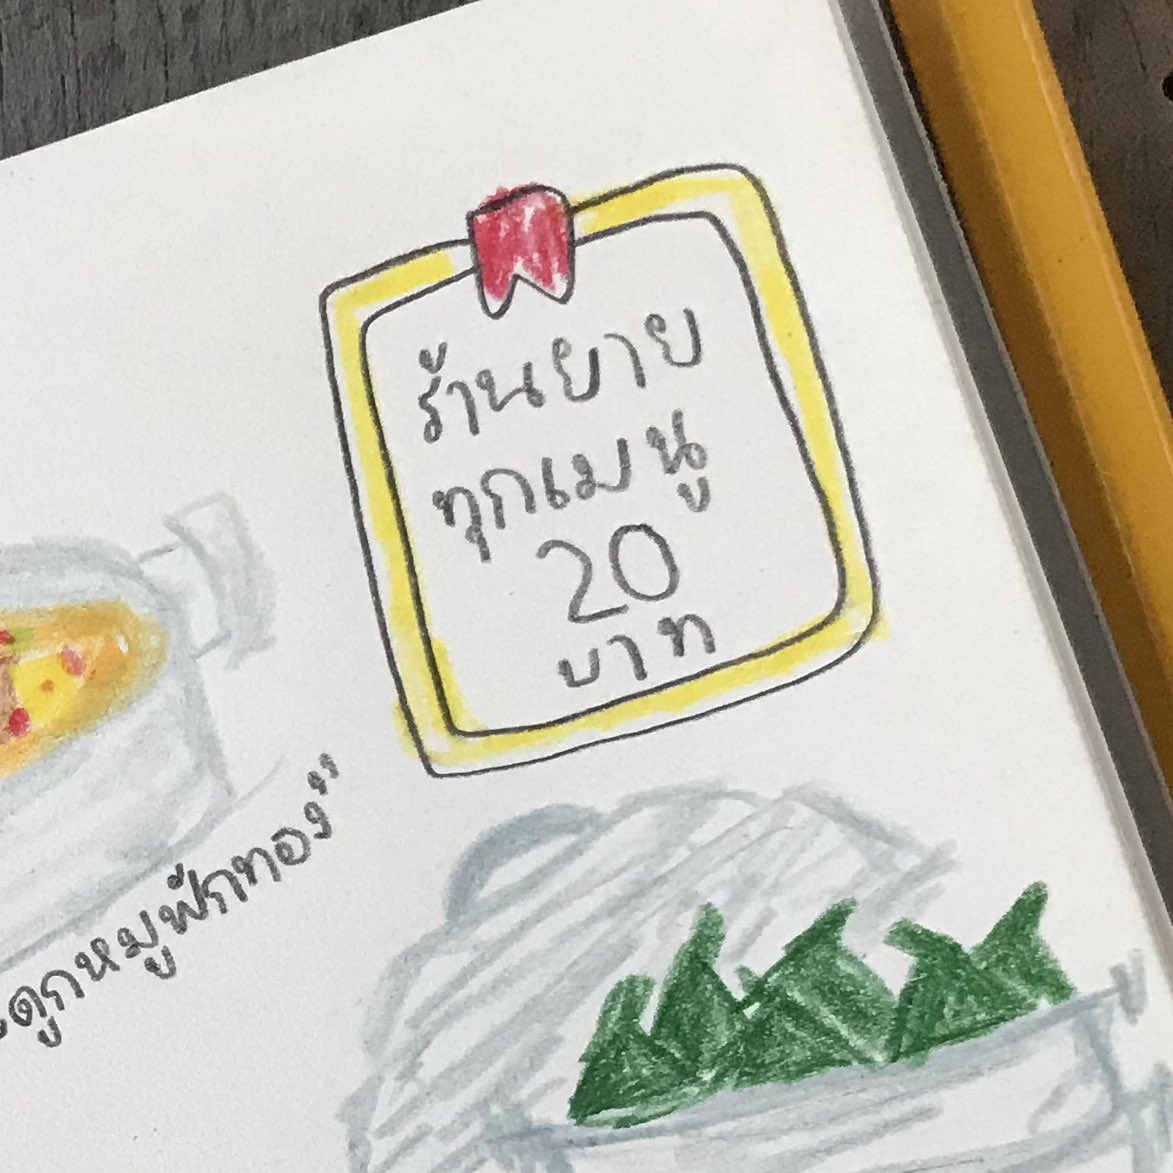 ร้านยาย
ทุกเมนู
20
บาท
ดูกหมูฟักทอง"